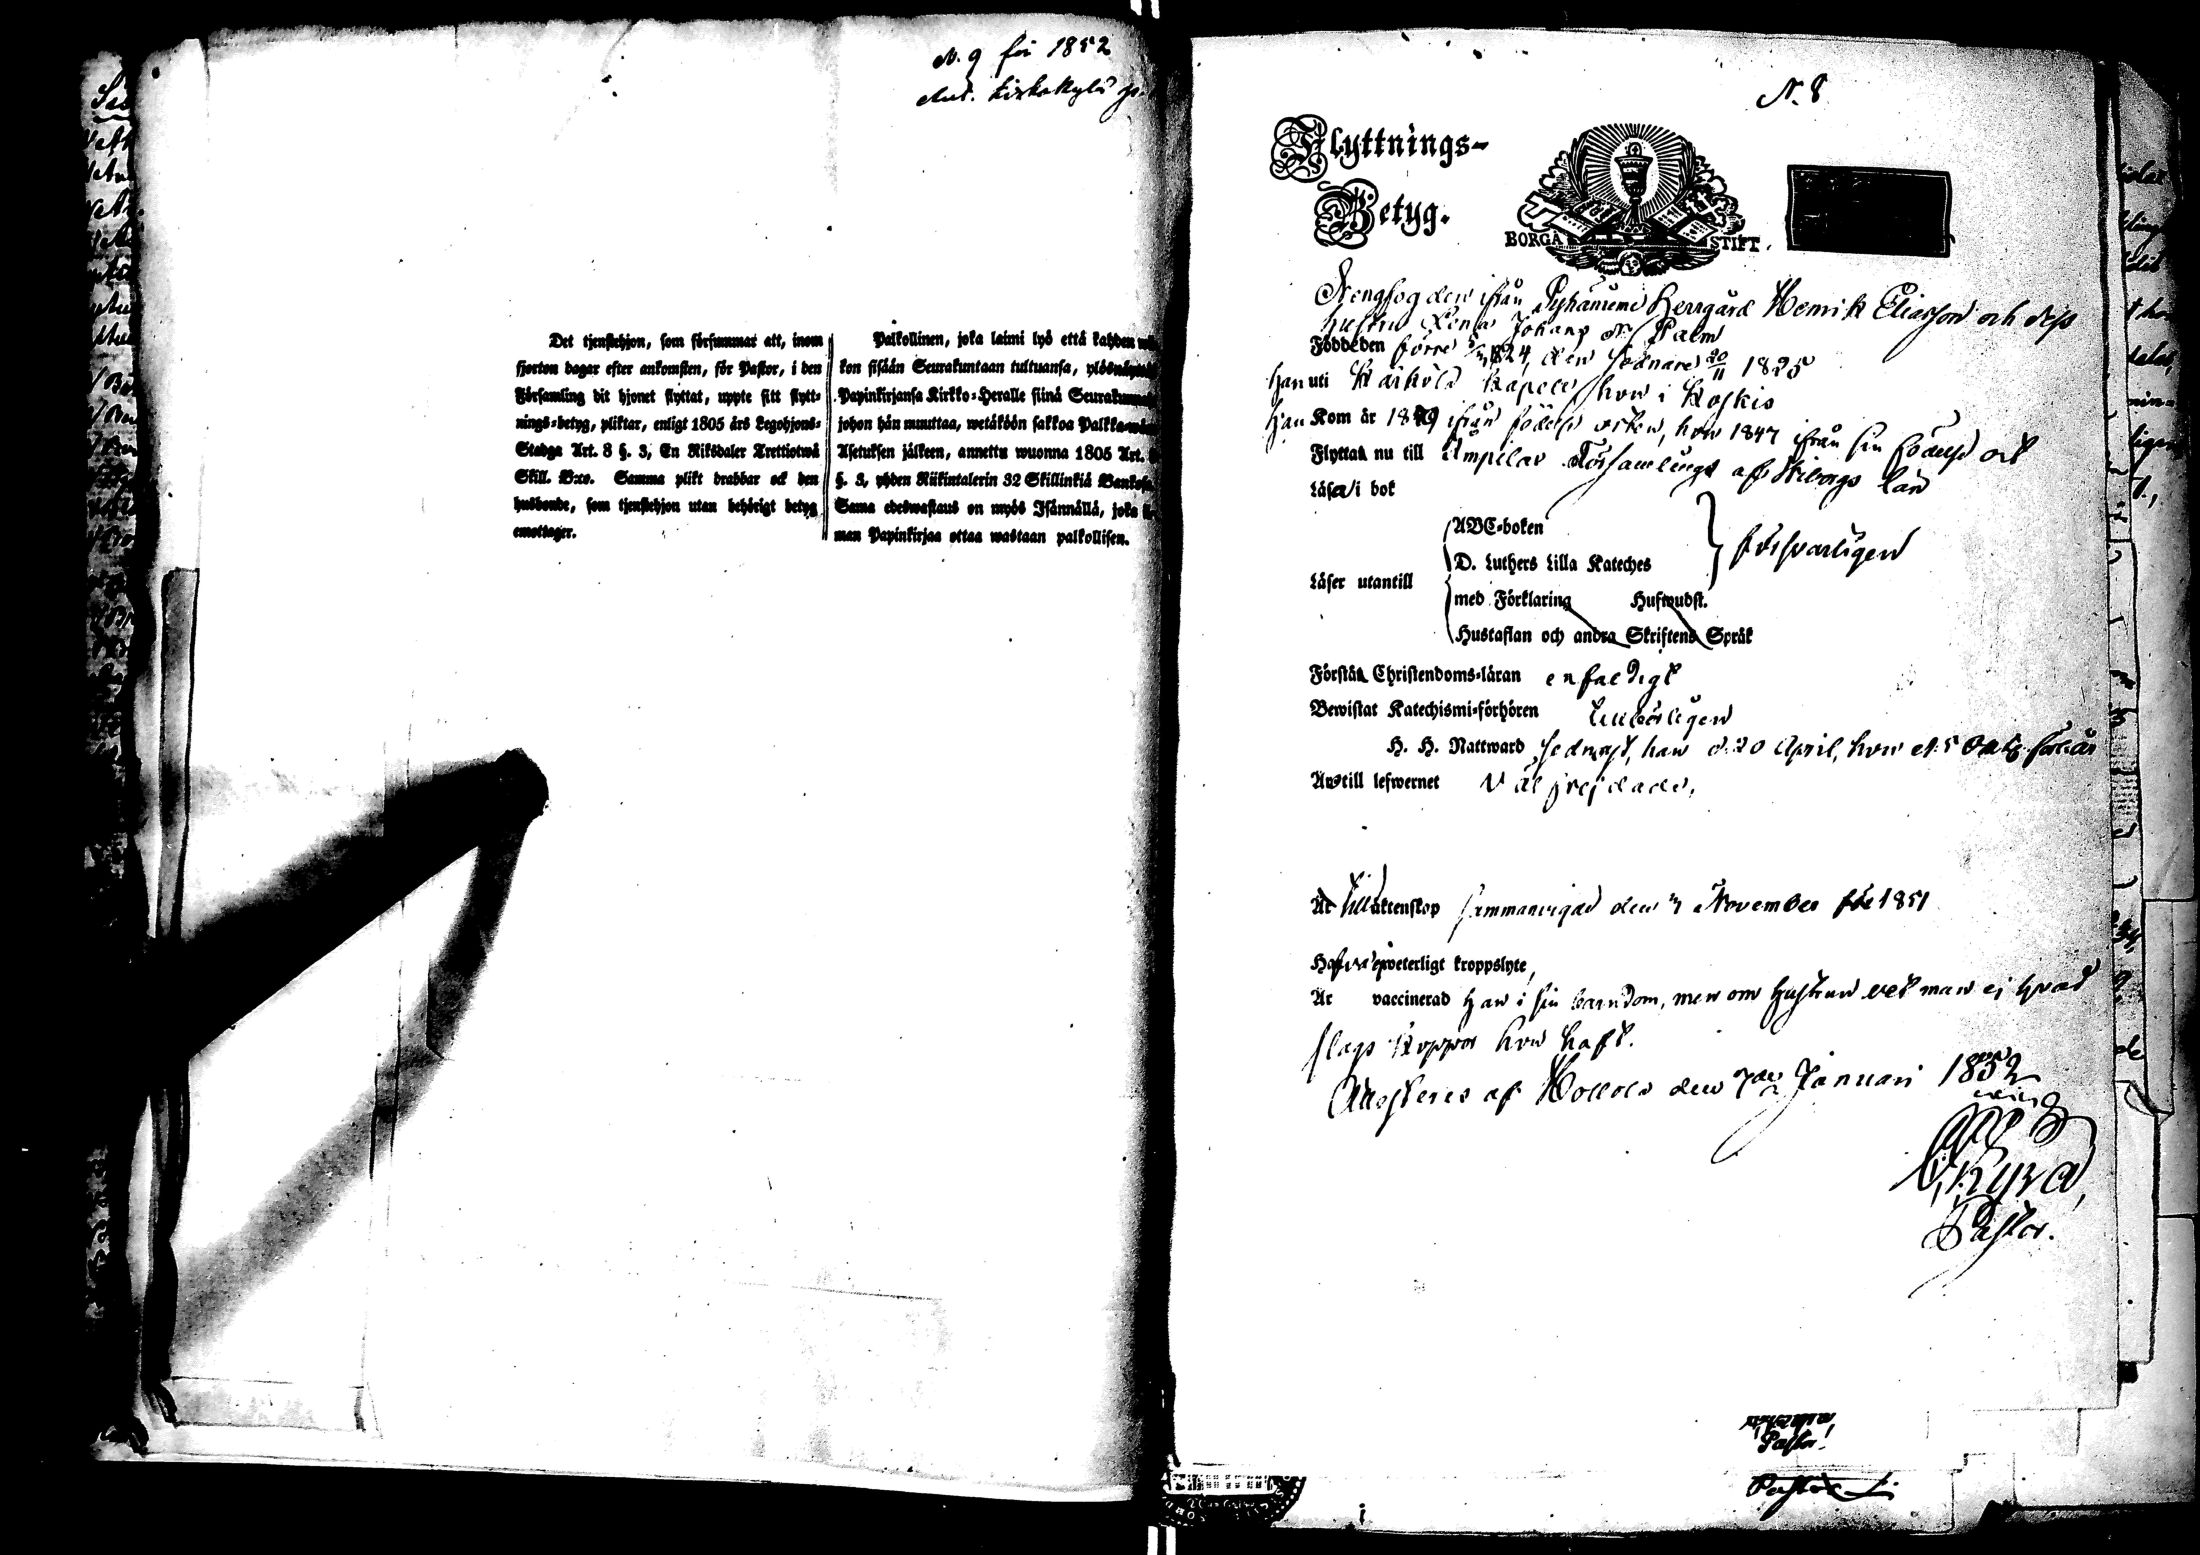 N. 9 för 1852
Ant. Kirkokylä
Det tjenstehjon, som försummar att, inom
fjorton dagar efter ankomsten, för Pastor, i den
Församling dit hjonet flyttat, uppte sitt flytt-
nings-betyg, pliktar, enligt 1805 års Legohjons-
Stadga Art. 8 §. 3, En Riksdaler Trettiotwå
Skill. B:co. Samma plikt drabbar ock den
husbonde, som tjenstehjon utan behörigt betyg
emottager.
Palkollinen, joka laimi lyö että kahden
kon sisään Seurakuntaan tultuansa,
Papinkirjansa Kirkko-Heralle siinä
johon hän muuttaa, wetäköön sakkoa
Asetuksen jälkeen, annettu wuonna 1805 Art.
§. 3, yhden Riikintalerin 32 Skillinkiä
Sama edeswastaus on myös Isännällä, joka
man Papinkirjaa ottaa wastaan palkollisen.
N. 8
Flyttnings-
Betyg.
BORGÅ STIFT.
ifrån Herrgård Henrik Eliasson och dess
hustru Lena Johans dr Palm
Född den förre 1824, den sednare 20/11 1825
han uti Kärkölä Kapell, hon i Koskis
Han Kom år 1849 ifrån födelse orten, hon 1847 ifrån sin födelse ort
Flyttar nu till Församlings af Wiborgs län
Läser i bok
ABC-boken
D. Luthers Lilla Kateches
försvarligen
Läser utantill
med Förklaring Hufwudst.
Hustaflan och andra Skriftens Språk
Förstår Christendoms-läran enfaldigt
Bewistat Katechismi-förhören
H. H. Nattward sednast, han d. 20 April, hon d. 5
Till lefwernet Väl frejdade,
Är till äktenskap den November 1851
kroppslyte,
Är vaccinerad han i sin barndom, men om hustrun vet man ej hvad
slags koppor hon haft.
Attesteras af Hollola den 7de Januari 1852
Pastor.
Pastor
Pastor